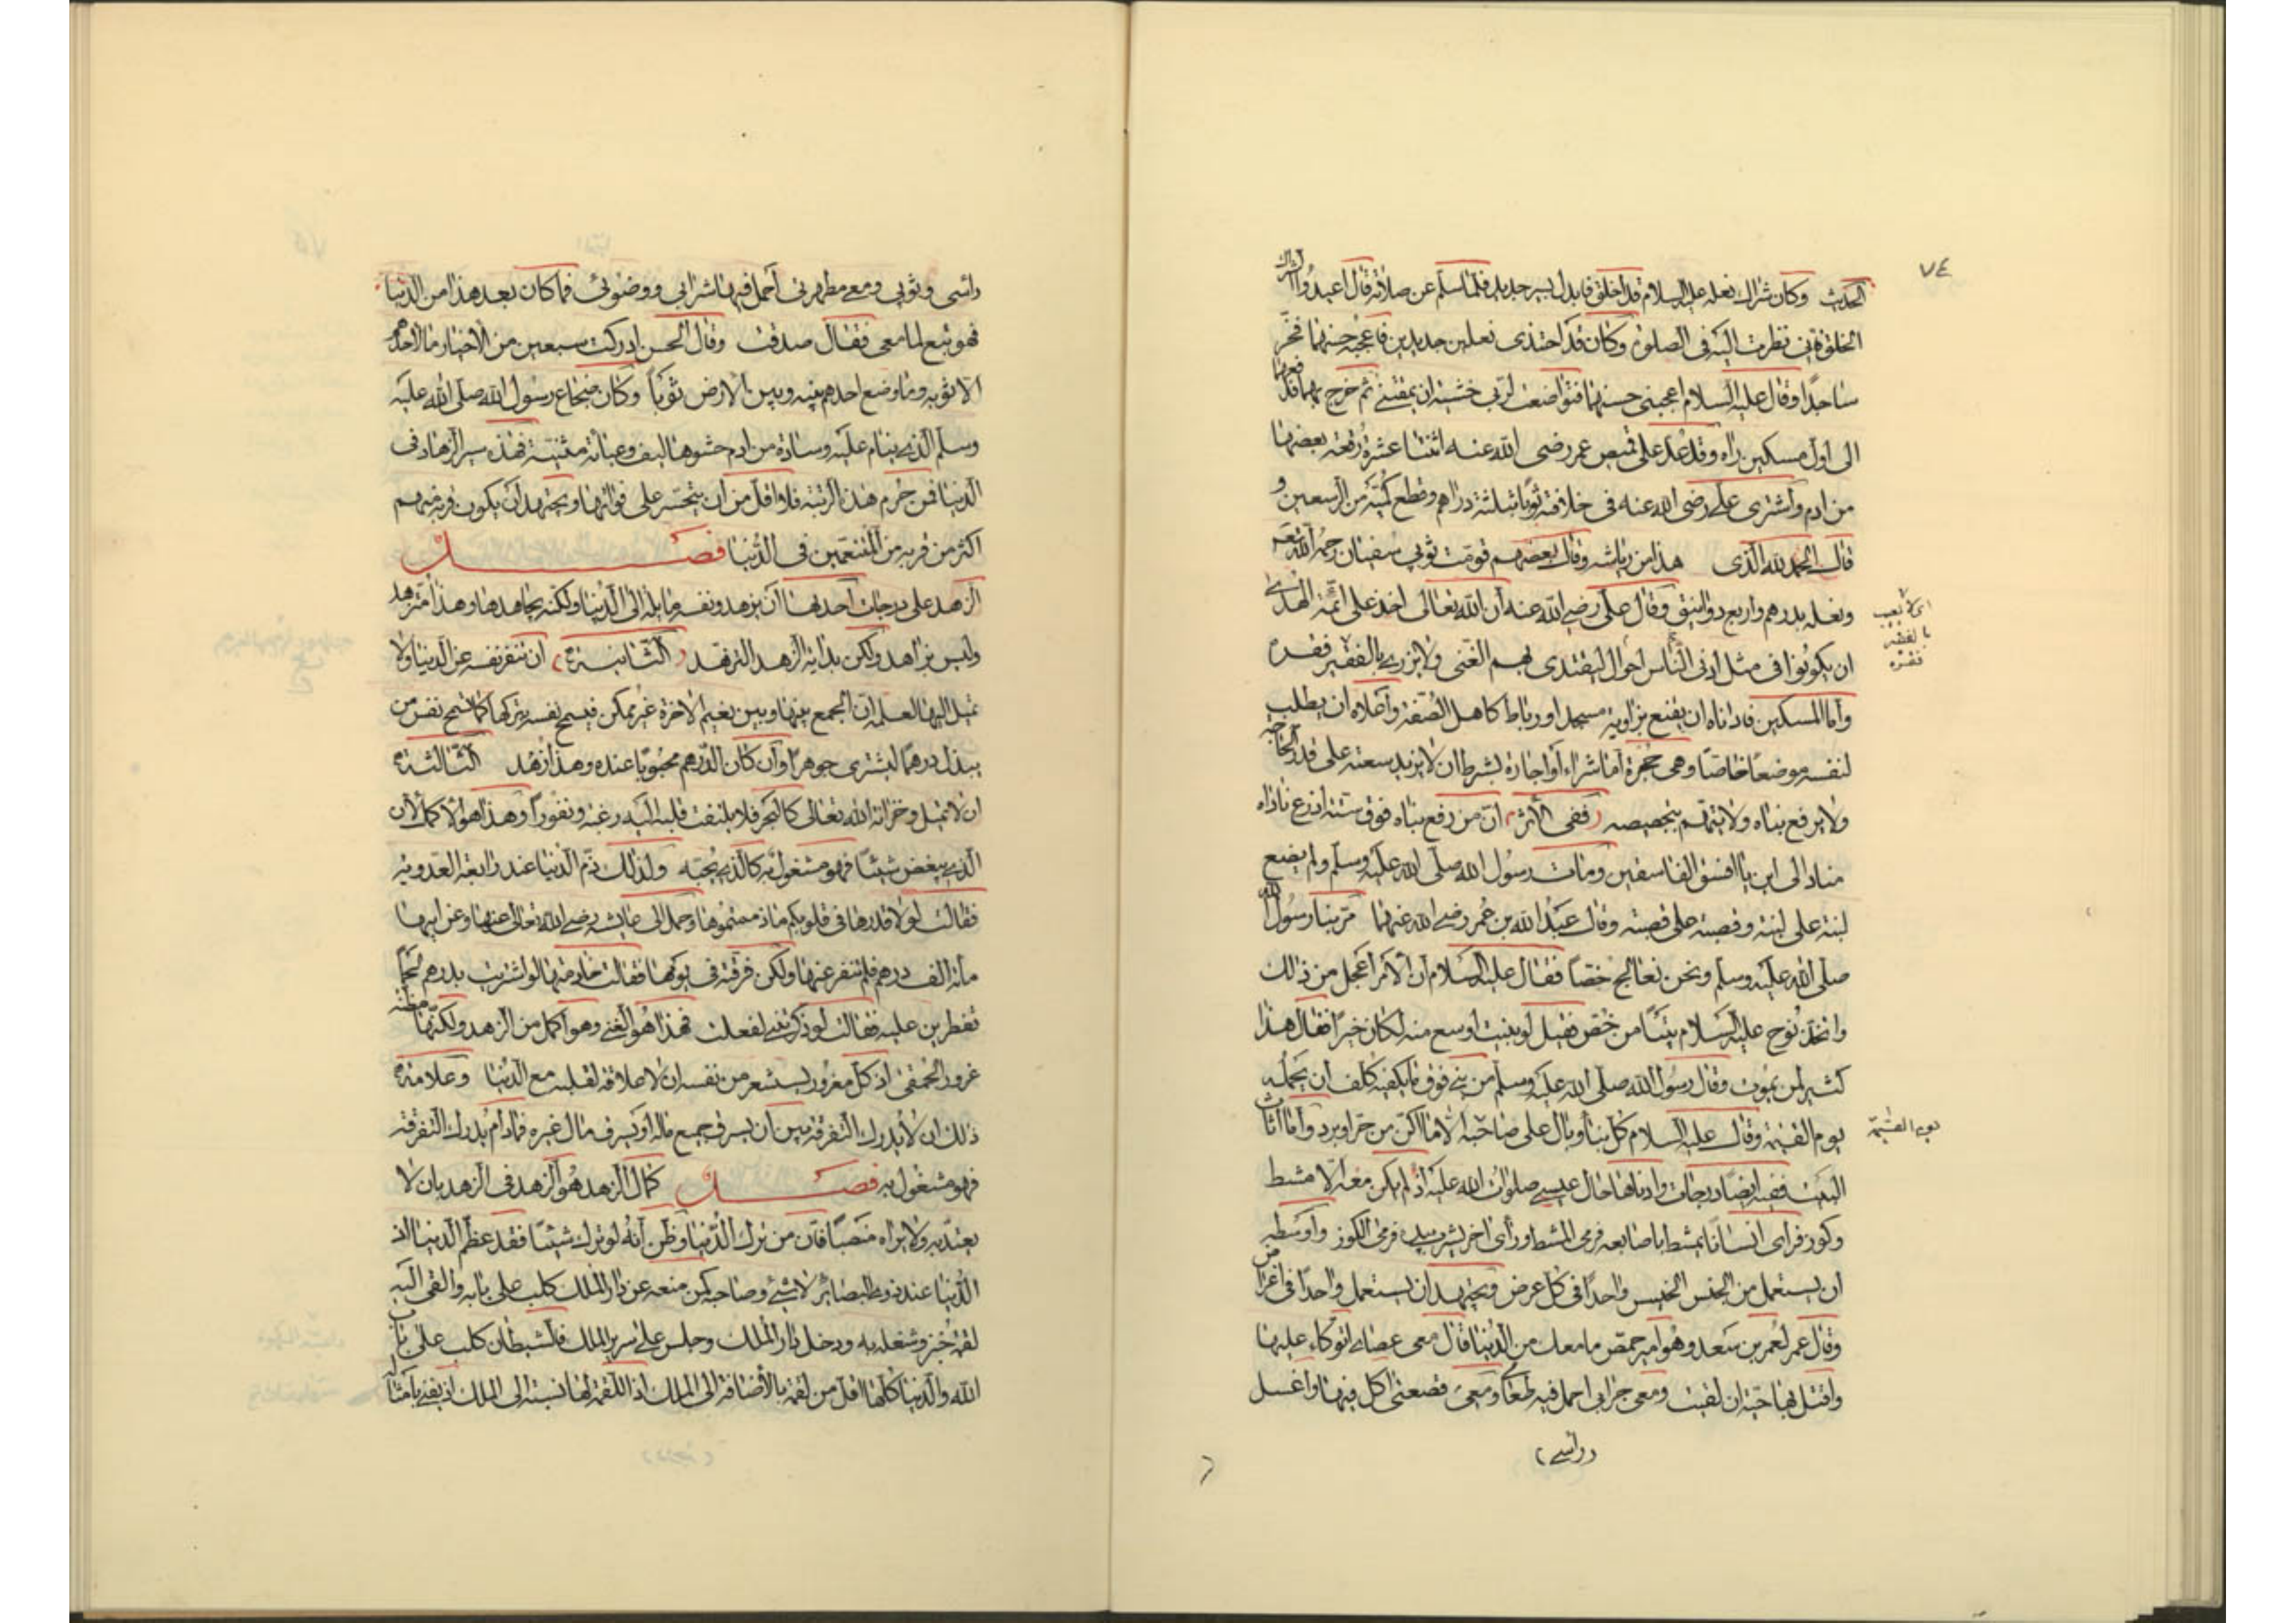 ٧٤
الحديث وكان شراك نعله عليه السلام قد اخلق فابدل بسير جديد فلما سلم عن صلاته قال اعيدوا الشراك
الخلق فاني نظرت اليه في الصلوة وكان قد احتذى نعلين جديدين فاعجبه حسنهما فخر
ساجدا وقال عليه السلام اعجبني حسنهما فتواضعت لربي خشية ان يمقتني ثم خرج بهما فدفعهما
الى اول مسكين راه وقد عد على قميص عمر رضى الله عنه اثنتا عشرة رقعة بعضها
من ادم واشترى على رضى الله عنه في خلافته ثوبا بثلثة دراهم وقطع كميه من الرسغين و
قال الحمد لله الذى هذا من رياشه وقال بعضهم قومت ثوبي سفيان رحمه الله تعه
ونعله بدرهم واربع دوانيق وقال على رضي الله عنه ان الله تعالى اخذ على ائمة الهدى
ان يكونوا في مثل ادنى الناس احوال ليقتدى بهم الغنى ولا يزرى بالفقير فقره
اى لا يعيب
بالفقير
فقره
واما المسكين فادناه ان يقنع بزاوية مسجد او رباط كاهل الصفة واعلاه ان يطلب
لنفسه موضعا خاصا وهى حجرة اما شراء او اجارة بشرط ان لا يزيد سعته على قدر الحاجة
ولا يرفع بناه ولا يهتم بتجصيصه ففى الأثر ان من رفع بناه فوق ستة اذرع ناداه
مناد الى اين يا افسق الفاسقين ومات رسول الله صلى الله عليه وسلم ولم يضع
لبنة على لبنة وقصبة على قصبة وقال عبد الله بن عمر رضى الله عنهما مر بنا رسول الله
صلى الله عليه وسلم ونحن نعالج خصا فقال عليه السلام ان الامر اعجل من ذلك
واتخذ نوح عليه السلام بيتا من خص فقيل لو بنيت اوسع منه لكان خيرا فقال هذا
كثير لمن يموت وقال رسول الله صلى الله عليه وسلم من بنى فوق ما يكفيه كلف ان يحمله
يوم القيمة وقال عليه السلام كل بناء وبال على صاحبه الا ما اكن من حر او برد واما اثاث
يوم القيمة
البيت ففيه ايضا درجات وادناها حال عيسى صلوات الله عليه اذ لم يكن معه الا مشط
وكوز فراى انسانا يمشط باصابعه فرمى المشط وراى اخر يشرب بيده فرمى الكوز واوسطه
ان يستعمل من الجنس الخسيس واحدا في كل عرض ويجتهد ان يستعمل واحدا في اغراض
وقال عمر لعمر بن سعد وهو امير حمص ما معك من الدنيا قال معى عصاى اتوكاء عليها
واقتل بها حية ان لقيت ومعى جرابي احمل فيه طعامى ومعى قصعتى اكل فيها واغسل
راسى
راسى وثوبي ومعى مطهرتى احمل فيها شرابي ووضوئى فما كان بعد هذا من الدنيا
فهو تبع لما معى فقال صدقت وقال الحسن ادركت سبعين من الاخيار ما لاحدهم
الا ثوبه وما وضع احدهم بينه وبين الارض ثوبا وكان ضجاع رسول الله صلى الله عليه
وسلم الذى ينام عليه وسادة من ادم حشوها ليف وعباءة مثنية فهذه سير الزهاد في
الدنيا فمن حرم هذه الرتبة فلا اقل من ان يتحسر على فواتها ويجتهد ان يكون قربه منهم
اكثر من قربه من المتنعمين في الدنيا فصل
الزهد على درجات احدها ان يزهد ونفسه مايلة الى الدنيا ولكنه يجاهدها وهذا متزهد
وليس بزاهد ولكن بداية الزهد التزهد الثانية ان تنفر نفسه عن الدنيا ولا
تميل اليها لعلمه ان الجمع بينها وبين نعيم الاخرة غير ممكن فيسمح نفسه بتركها كما تسمح نفس من
يبذل درهما ليشترى جوهرا وان كان الدرهم محبوبا عنده وهذا زهد الثالثة
ان لا تميل وخزانة الله تعالى كالبحر فلا يلتفت قلبه اليه رغبة ونفورا وهذا هو الاكمل لان
الذى يبغض شيئا فهو مشغول به كالذى يحبه ولذلك ذم الدنيا عند رابعة العدوية
فقالت لولا قدرها في قلوبكم ما ذممتموها وحمل الى عايشة رضى الله تعالى عنها وعن ابيها
مأة الف درهم فلم تنفر عنها ولكن فرقته في يومها فقالت خادمتها لو اشتريت بدرهم لحما
تفطرين عليه فقالت لو ذكرتنى لفعلت فهذا هو الغنى وهو اكمل من الزهد ولكنها مظنة
غرور الحمقى اذ كل مغرور يستشعر من نفسه ان لا علاقة لقلبه مع الدنيا وعلامة
ذلك ان لا يدرك التفرقة بين ان يسرق جميع ماله او يسرق مال غيره فما دام يدرك التفرقة
فهو مشغول به فصل كمال الزهد هو الزهد في الزهد بان لا
يعتد به ولا يراه منصبا فان من ترك الدنيا وظن انه لو ترك شيئا فقد عظم الدنيا اذ
الدنيا عند ذوى البصائر لا شئ وصاحبه كمن منعه عن دار الملك كلب على بابه والقى اليه
لقمة خبز وشغله به ودخل دار الملك وجلس على سرير الملك فالشيطان كلب على باب
الله والدنيا كلها اقل من لقمة بالاضافة الى الملك اذ اللقمة لها نسبة الى الملك